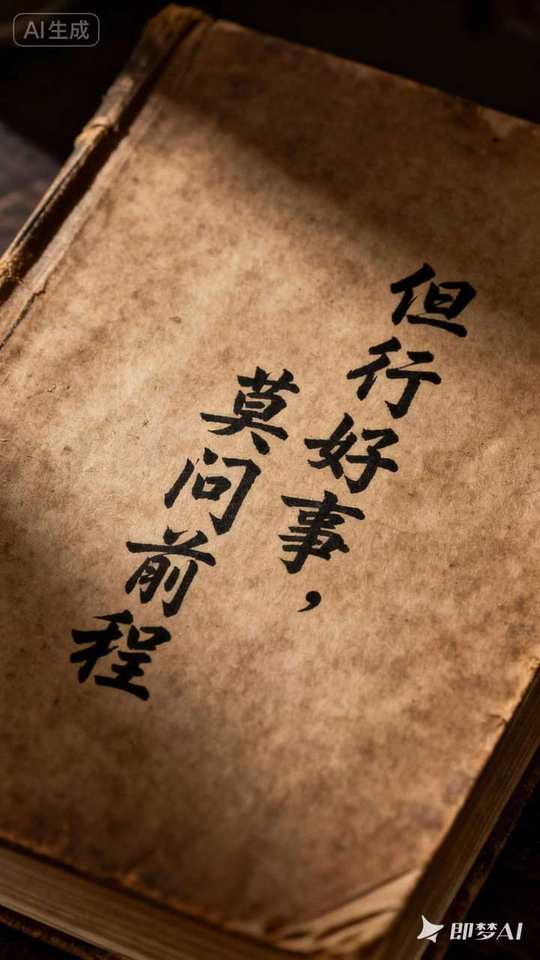 AI生成
但行好事，
莫问前程
即梦AI